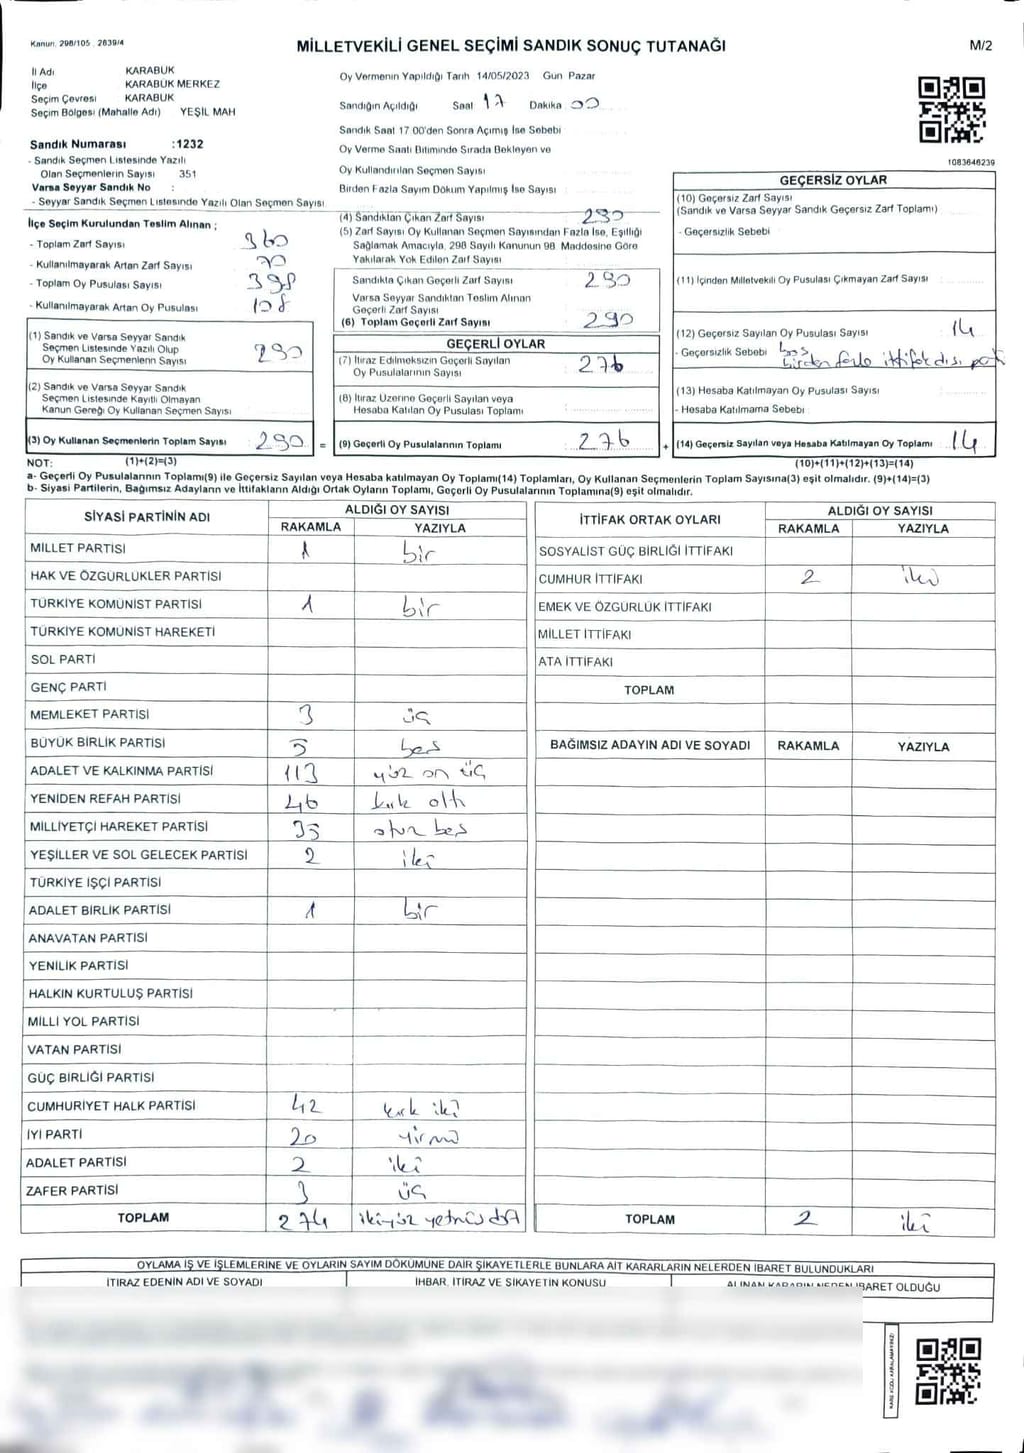 Kanun. 298/105 . 2839/4
MİLLETVEKİLİ GENEL SEÇİMİ SANDIK SONUÇ TUTANAĞI
M/2
İl Adı KARABUK
İlçe KARABUK MERKEZ
Seçim Çevresi KARABUK
Seçim Bölgesi (Mahalle Adı) YEŞİL MAH
Oy Vermenin Yapıldığı Tarih 14/05/2023 Gun Pazar
Sandığın Açıldığı Saat 17 Dakika 00
Sandık Saat 17 00'den Sonra Açımış İse Sebebi
Oy Verme Saati Bitiminde Sırada Bekleyen ve
Oy Kullandırılan Seçmen Sayısı
Birden Fazla Sayım Dokum Yapılmış İse Sayısı
Sandık Numarası :1232
- Sandık Seçmen Listesinde Yazılı
Olan Seçmenlerin Sayısı 351
Varsa Seyyar Sandık No :
- Seyyar Sandık Seçmen Listesinde Yazılı Olan Seçmen Sayısı
1083646239
İlçe Seçim Kurulundan Teslim Alınan ;
- Toplam Zarf Sayısı 360
- Kullanılmayarak Artan Zarf Sayısı 70
- Toplam Oy Pusulası Sayısı 398
- Kullanılmayarak Artan Oy Pusulası 108
(1) Sandık ve Varsa Seyyar Sandık
Seçmen Listesinde Yazılı Olup
Oy Kullanan Seçmenlerin Sayısı 290
(2) Sandık ve Varsa Seyyar Sandık
Seçmen Listesinde Kayıtlı Olmayan
Kanun Gereği Oy Kullanan Seçmen Sayısı
(3) Oy Kullanan Seçmenlerin Toplam Sayısı 290 =
(4) Sandıktan Çıkan Zarf Sayısı 290
(5) Zarf Sayısı Oy Kullanan Seçmen Sayısından Fazla İse, Eşitliği
Sağlamak Amacıyla, 298 Sayılı Kanunun 98 Maddesine Göre
Yakılarak Yok Edilen Zarf Sayısı
Sandıkta Çıkan Geçerli Zarf Sayısı 290
Varsa Seyyar Sandıktan Teslim Alınan
Geçerli Zarf Sayısı
(6) Toplam Geçerli Zarf Sayısı 290
GEÇERLİ OYLAR
(7) İtiraz Edilmeksizin Geçerli Sayılan
Oy Pusulalarının Sayısı 276
(8) İtiraz Üzerine Geçerli Sayılan veya
Hesaba Katılan Oy Pusulası Toplamı
(9) Geçerli Oy Pusulalarının Toplamı 276 +
GEÇERSİZ OYLAR
(10) Geçersiz Zarf Sayısı
(Sandık ve Varsa Seyyar Sandık Geçersiz Zarf Toplamı)
- Geçersizlik Sebebi
(11) İçinden Milletvekili Oy Pusulası Çıkmayan Zarf Sayısı
(12) Geçersiz Sayılan Oy Pusulası Sayısı 14
- Geçersizlik Sebebi boş
birden fazla ittifak dışı parti
(13) Hesaba Katılmayan Oy Pusulası Sayısı
- Hesaba Katılmama Sebebi
(14) Geçersiz Sayılan veya Hesaba Katılmayan Oy Toplamı 14
NOT: (1)+(2)=(3)
(10)+(11)+(12)+(13)=(14)
a- Geçerli Oy Pusulalarının Toplamı(9) ile Geçersiz Sayılan veya Hesaba katılmayan Oy Toplamı(14) Toplamları, Oy Kullanan Seçmenlerin Toplam Sayısına(3) eşit olmalıdır. (9)+(14)=(3)
b- Siyasi Partilerin, Bağımsız Adayların ve İttifakların Aldığı Ortak Oyların Toplamı, Geçerli Oy Pusulalarının Toplamına(9) eşit olmalıdır.
SİYASİ PARTİNİN ADI
ALDIĞI OY SAYISI
RAKAMLA YAZIYLA
MİLLET PARTİSİ 1 bir
HAK VE ÖZGÜRLÜKLER PARTİSİ
TÜRKİYE KOMÜNİST PARTİSİ 1 bir
TÜRKİYE KOMÜNİST HAREKETİ
SOL PARTİ
GENÇ PARTİ
MEMLEKET PARTİSİ 3 üç
BÜYÜK BİRLİK PARTİSİ 5 beş
ADALET VE KALKINMA PARTİSİ 113 yüz on üç
YENİDEN REFAH PARTİSİ 46 kırk altı
MİLLİYETÇİ HAREKET PARTİSİ 35 otuz beş
YEŞİLLER VE SOL GELECEK PARTİSİ 2 iki
TÜRKİYE İŞÇİ PARTİSİ
ADALET BİRLİK PARTİSİ 1 bir
ANAVATAN PARTİSİ
YENİLİK PARTİSİ
HALKIN KURTULUŞ PARTİSİ
MİLLİ YOL PARTİSİ
VATAN PARTİSİ
GÜÇ BİRLİĞİ PARTİSİ
CUMHURİYET HALK PARTİSİ 42 kırk iki
İYİ PARTİ 20 yirmi
ADALET PARTİSİ 2 iki
ZAFER PARTİSİ 3 üç
TOPLAM 274 ikiyüz yetmiş dört
İTTİFAK ORTAK OYLARI
ALDIĞI OY SAYISI
RAKAMLA YAZIYLA
SOSYALİST GÜÇ BİRLİĞİ İTTİFAKI
CUMHUR İTTİFAKI 2 iki
EMEK VE ÖZGÜRLÜK İTTİFAKI
MİLLET İTTİFAKI
ATA İTTİFAKI
TOPLAM
BAĞIMSIZ ADAYIN ADI VE SOYADI RAKAMLA YAZIYLA
TOPLAM 2 iki
OYLAMA İŞ VE İŞLEMLERİNE VE OYLARIN SAYIM DÖKÜMÜNE DAİR ŞİKAYETLERLE BUNLARA AİT KARARLARIN NELERDEN İBARET BULUNDUKLARI
İTİRAZ EDENİN ADI VE SOYADI İHBAR, İTİRAZ VE ŞİKAYETİN KONUSU ALINAN KARARIN NEDEN İBARET OLDUĞU
KARE KODU KARALAMAYINIZ!